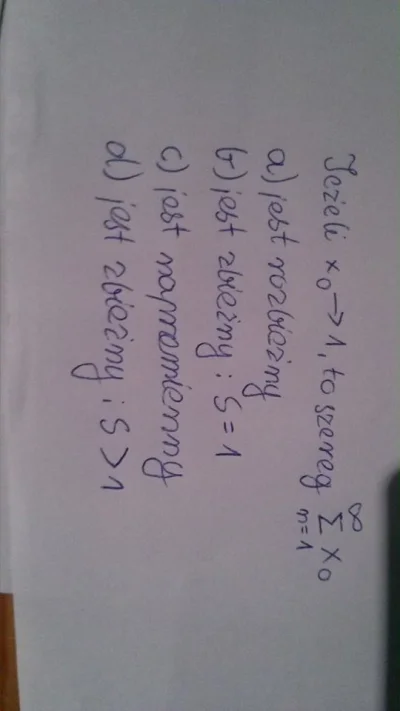 Jeżeli x₀→1, to szereg ∞ Σ n=1 x₀
a) jest rozbieżny
b) jest zbieżny i S=1
c) jest naprzemienny
d) jest zbieżny i S>1